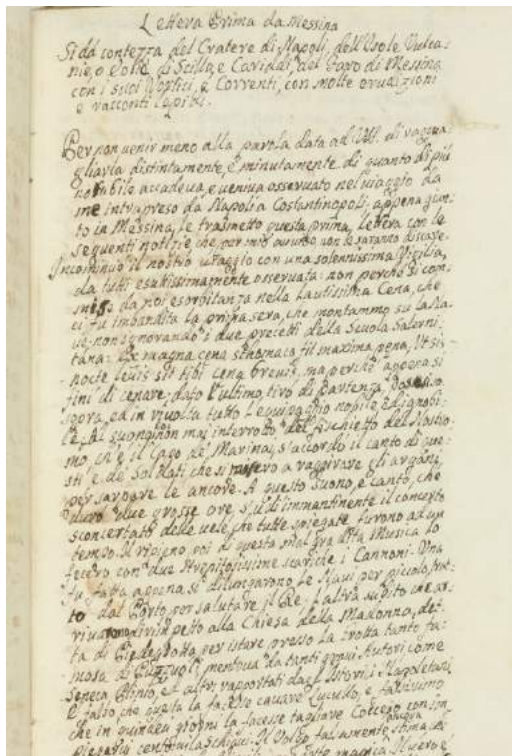 Lettera Prima da Messina
Si dà contezza del Cratere di Napoli, dell'Isole Vulca-
nie, o Eolie di Scilla, e Cariddi, del Faro di Messina
con i suoi Vortici, e Correnti, con molte erudizioni
e racconti lepidi.
Per non venir meno alla parola data ad VSS. di raggua-
gliarla distintamente, e minutamente di quanto di più
notabile accadeva, e veniva osservato nel viaggio da
me intrapreso da Napoli a Costantinopoli, appena giun-
to in Messina, le trasmetto questa prima lettera con le
seguenti notizie che per mio avviso non le saranno discare.
Incominciò il nostro viaggio con una solennissima Vigilia,
da tutti esattissimamente osservata: non perchè si com-
mise da noi esorbitanza nella lautissima Cena, che
ci fu imbandita la prima sera, che montammo su la Na-
ve non ignorando i due precetti della Scuola Salerni-
tana: Ex magna cena stomaco fit maxima pena, Ut sis
nocte levis sit tibi cena brevis, ma perchè appena si
finì di cenare, dato l'ultimo tiro di partenza,
sopra, ed in rivolta tutto l'equipaggio nobile, ed ignobi-
le. Al suono non mai interrotto del fischietto del Nostro-
mo, ch'è il Capo de' Marinai, s'accordò il canto di que-
sti e de' Soldati che si misero a raggirare gli argani
per sarpare le ancore. A questo suono, e canto, che
durò due grosse ore, s'udì immantinente il concerto
sconcertato delle vele che tutte spiegate furono ad un
tempo. Il ripieno poi di questa mal gradita Musica lo
fecero con due strepitosissime scariche i Cannoni. Una
fu fatta appena si dilungarono le Navi per piccolo trat-
to dal Porto per salutare il Re: l'altra subito che ar-
rivammo dirimpetto alla Chiesa della Madonna, det-
ta di Piedegrotta, per istare presso la Grotta tanto fa-
mosa di Pozzuoli mentovata da tanti gravi Autori come
Seneca Plinio, ed altri rapportati dagl'Istorici Napoletani
È falso, che questa la facesse cavare Lucullo, e falsissimo
che in quindeci giorni la facesse tagliare Cocceio con im-
piegarvi centomila Schiavi. Il Volgo falsamente stima